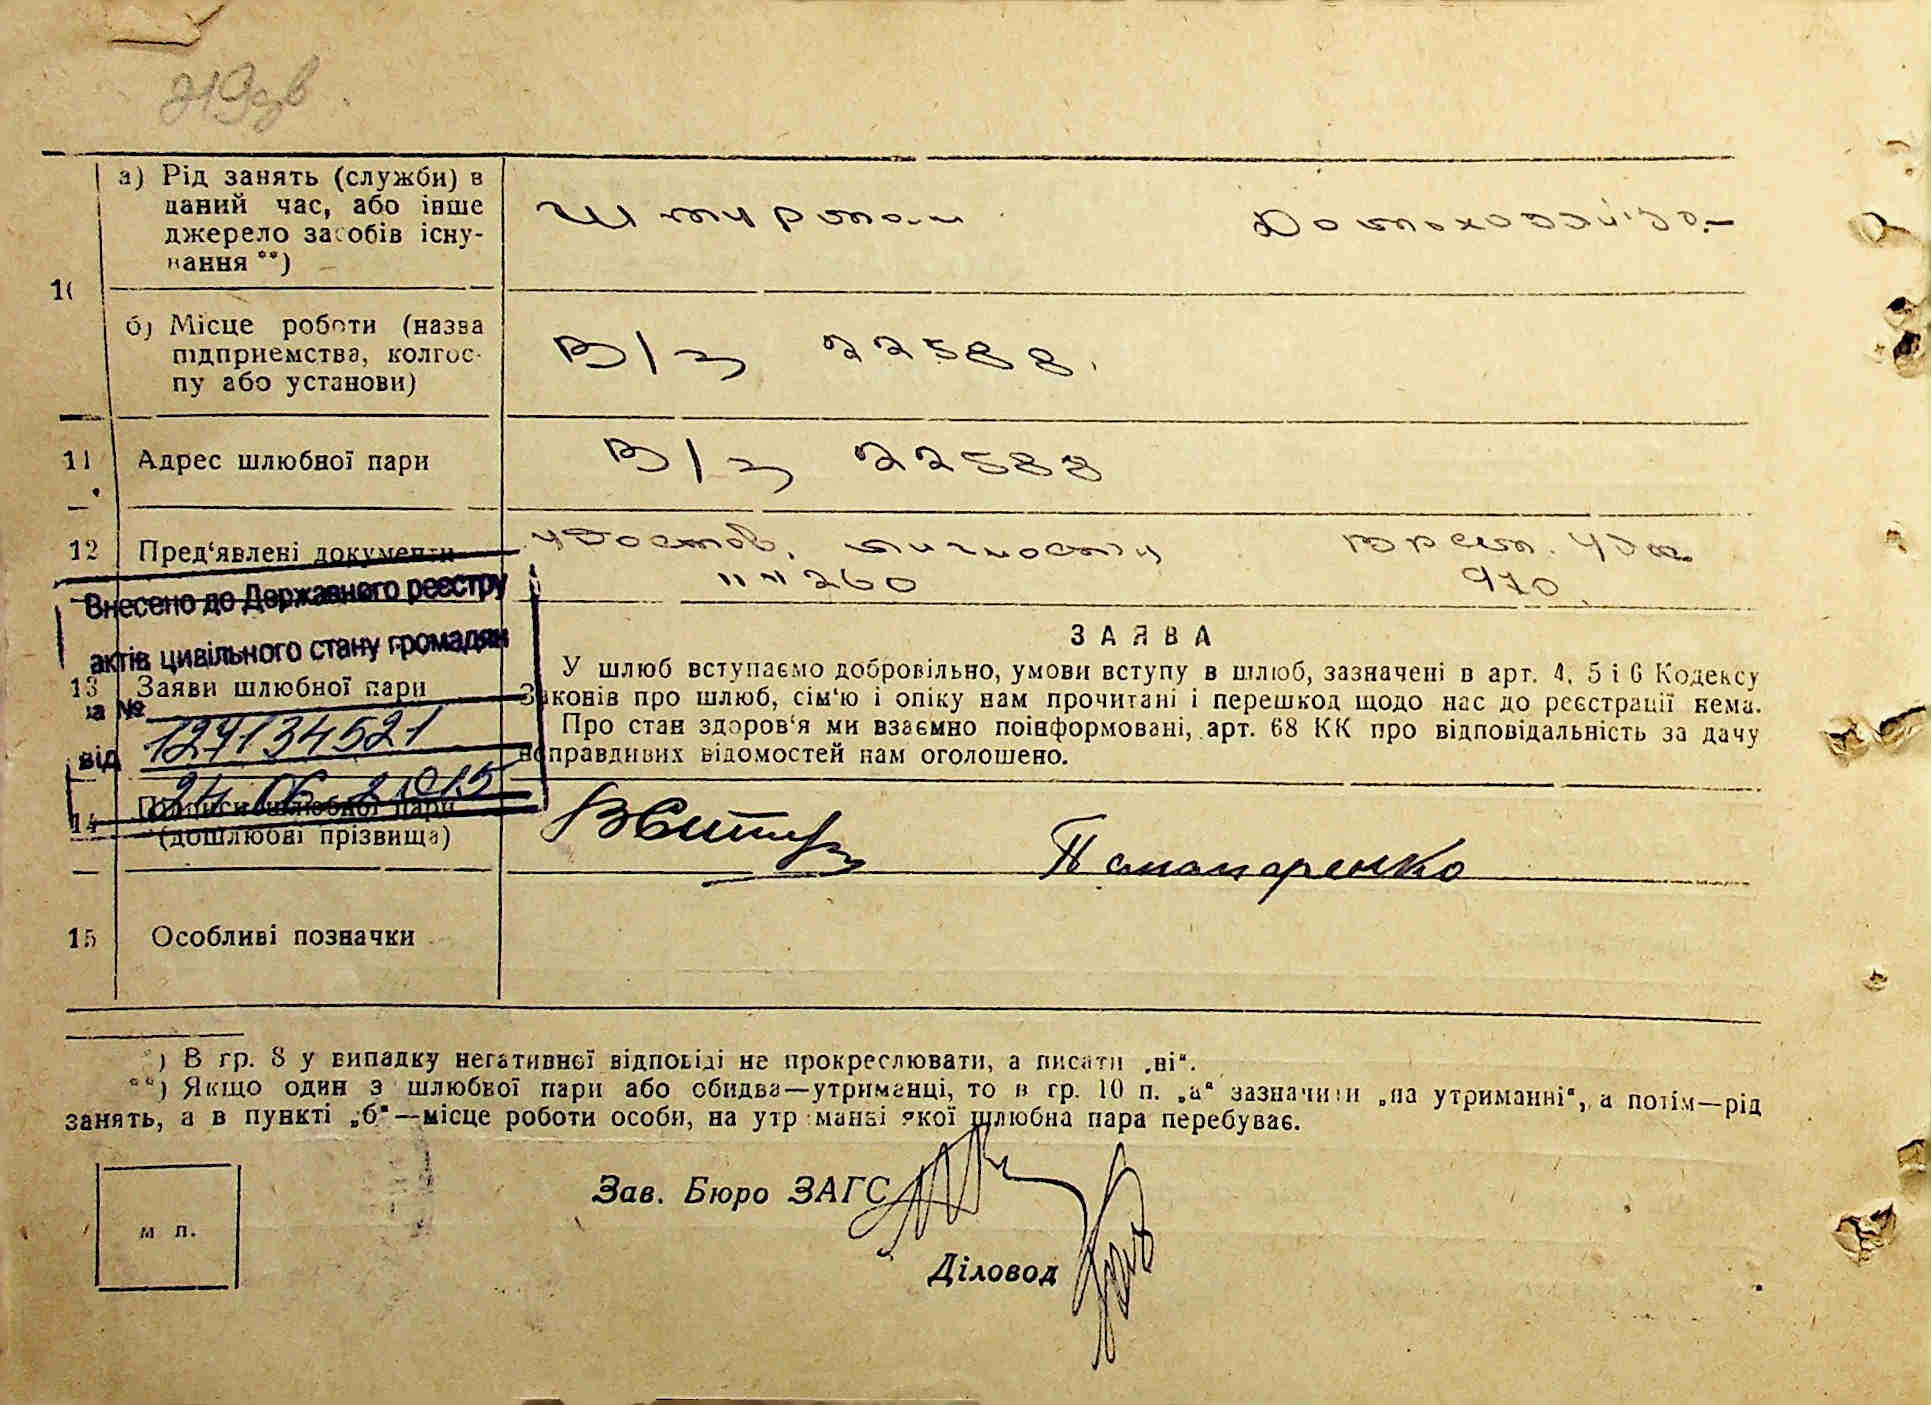 а) Рід занять (служби) в
даний час, або інше
джерело засобів існу-
вання **)
Штурман
Домохозяйка
10
б) Місце роботи (назва
підприємства, колгос-
пу або установи)
В/ч 22588.
11 Адрес шлюбної пари
В/ч 22588
12 Пред‘явлені документи
удостов. личности
№ 260
врем. уд.
970
Внесено до Державного реєстру
актів цивільного стану громадян
за №
124134521
від
24 06 2015
13 Заяви шлюбної пари
ЗАЯВА
У шлюб вступаємо добровільно, умови вступу в шлюб, зазначені в арт. 4, 5 і 6 Кодексу
Законів про шлюб, сім‘ю і опіку нам прочитані і перешкод щодо нас до реєстрації нема.
Про стан здоров‘я ми взаємно поінформовані, арт. 68 КК про відповідальність за дачу
неправдивих відомостей нам оголошено.
14 Підписи шлюбної пари
(дошлюбні прізвища)
15 Особливі позначки
*) В гр. 8 у випадку негативної відповіді не прокреслювати, а писати „ні“.
**) Якщо один з шлюбної пари або обидва—утриманці, то в гр. 10 п. „а“ зазначити „на утриманні“, а потім—рід
занять, а в пункті „б“—місце роботи особи, на утриманні якої шлюбна пара перебуває.
м п.
Зав. Бюро ЗАГС
Діловод